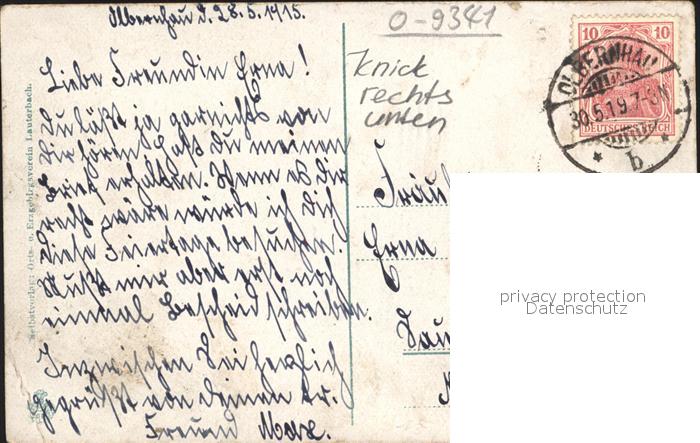 Olbernhau d. 28.5.1915.
O-9341
Knick
rechts
unten
10 10
OLBERNHAU
30.5.19.7-8N
* b *
DEUTSCHES REICH
Liebe Freundin Erna!
Du läßt ja garnichts von
Dir hören hast du meinen
Brief erhalten. Wenn es dir
recht wäre würde ich dich
diese Feiertage besuchen.
Mußt mir aber erst noch
einmal Bescheid schreiben.
Inzwischen sei herzlich
gegrüßt von deinem tr.
Freund Max.
Fräul
Erna
Lau
Selbstverlag: Orts- u. Erzgebirgsverein Lauterbach.
privacy protection
Datenschutz